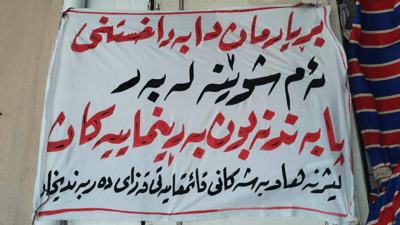 بڕیارمان دا بە داخستنی
ئەم شوێنە لە بەر
پابەند نەبون بە ڕێنماییەکان
لیژنە هاوبەشەکانی قائمقامیەتی قەزای دەربەندیخان